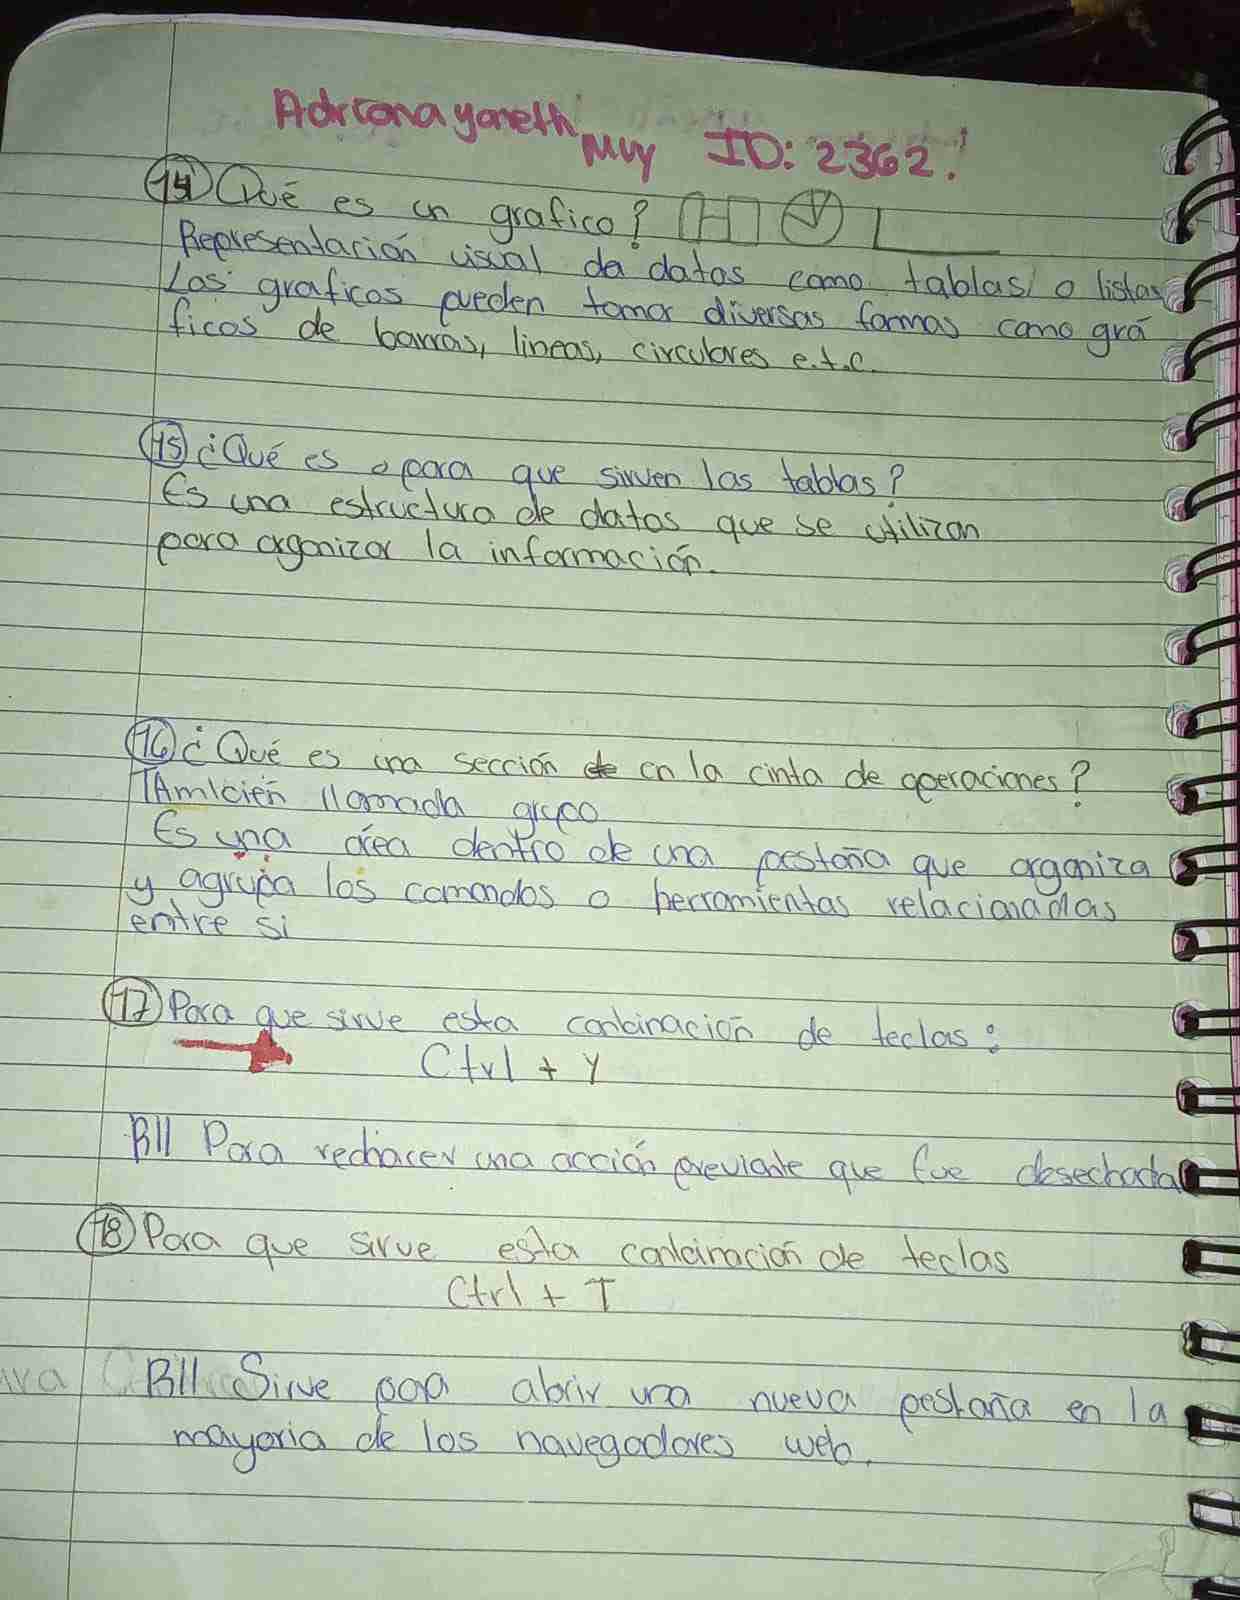 Adriana yaneth Muy ID: 2362.
14 Qué es un grafico?
Representación visual de datos como tablas o listas
Los graficos pueden tomar diversas formas como grá
ficos de barras, lineas, circulares e.t.c.
15 ¿Qué es o para que sirven las tablas?
Es una estructura de datos que se utilizan
para organizar la información.
16 ¿Qué es una sección en la cinta de operaciones?
TAmbién llamada grupo
Es una área dentro de una pestaña que organiza
y agrupa los comandos o herramientas relacionadas
entre si
17 Para que sirve esta conbinación de teclas:
Ctrl + Y
R// Para rechacer una acción previante que fue desechada
18 Para que sirve esta conbinación de teclas
Ctrl + T
R// Sirve para abrir una nueva pestaña en la
mayoria de los navegadores web.